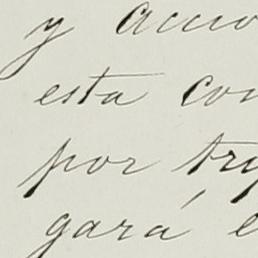 y accio
esta con
por trip
gará e